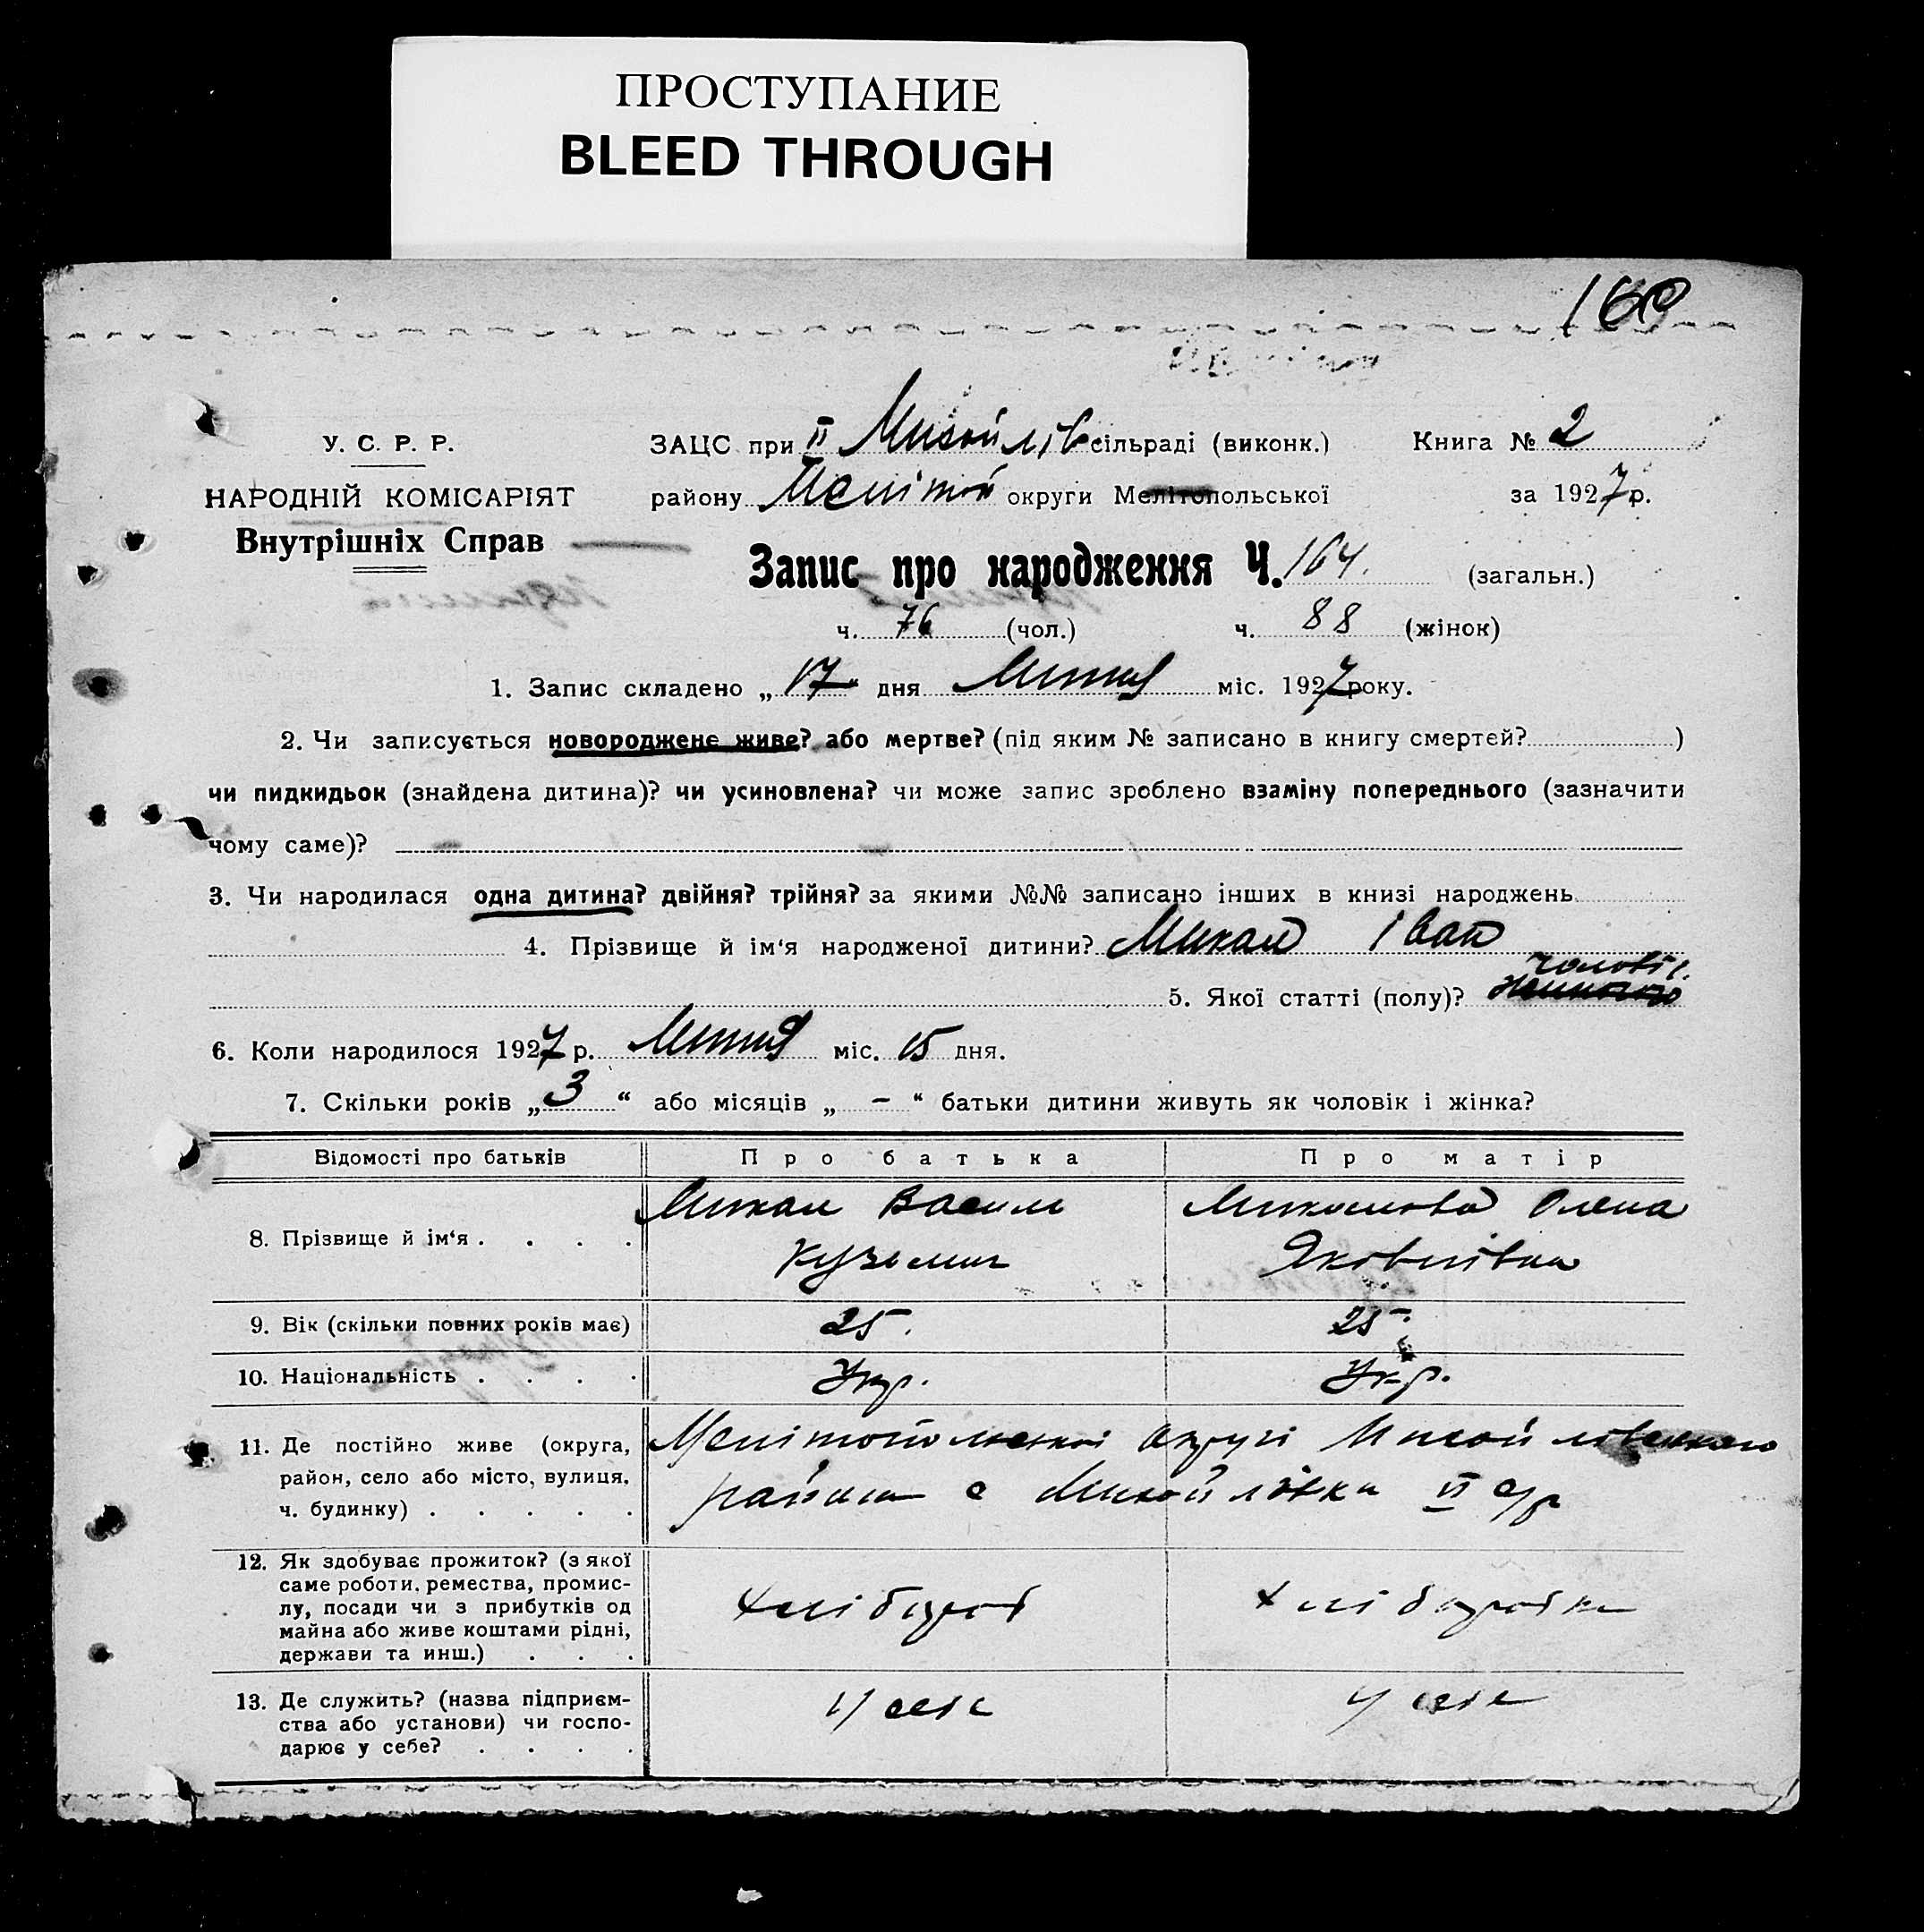 ПРОСТУПАНИЕ
BLEED THROUGH
160
У. С. Р. Р.
НАРОДНІЙ КОМІСАРІЯТ
Внутрішніх Справ
ЗАЦС при ІІ Михайлів сільраді (виконк.) Книга № 2
району Меліт округи Мелітопольської за 1927 р.
Запис про народження Ч. 164. (загальн.)
ч. 76 (чол.) ч. 88 (жінок)
1. Запис складено „ 17 " дня Липня міс. 1927 року.
2. Чи записується новороджене живе? або мертве? (під яким № записано в книгу смертей? )
чи пидкидьок (знайдена дитина)? чи усиновлена? чи може запис зроблено взаміну попереднього (зазначити
чому саме)?
3. Чи народилася одна дитина? двійня? трійня? за якими №№ записано інших в книзі народжень
4. Прізвище й ім‘я народженої дитини? Микал Іван
5. Якої статті (полу)? чоловіч.
6. Коли народилося 1927 р. Липня міс. 15 дня.
7. Скільки років „ 3 “ або місяців „ – “ батьки дитини живуть як чоловік і жінка?
Відомості про батьків Про батька Про матір
8. Прізвище й ім‘я . . . . Микал Василь Олена
Кузьмич Яковлівна
9. Вік (скільки повних років має) 25. 25.
10. Національність . . . . Укр. Укр.
11. Де постійно живе (округа,
район, село або місто, вулиця,
ч. будинку) . . . . .
Мелітопольської округі Михайлівського
району с Михайлівка с/р
12. Як здобуває прожиток? (з якої
саме роботи, ремества, промис-
лу, посади чи з прибутків од
майна або живе коштами рідні,
держави та инш.) . . .
хлібороб хліборобка
13. Де служить? (назва підприєм-
ства або установи) чи госпо-
дарює у себе? . . . .
у себе у себе